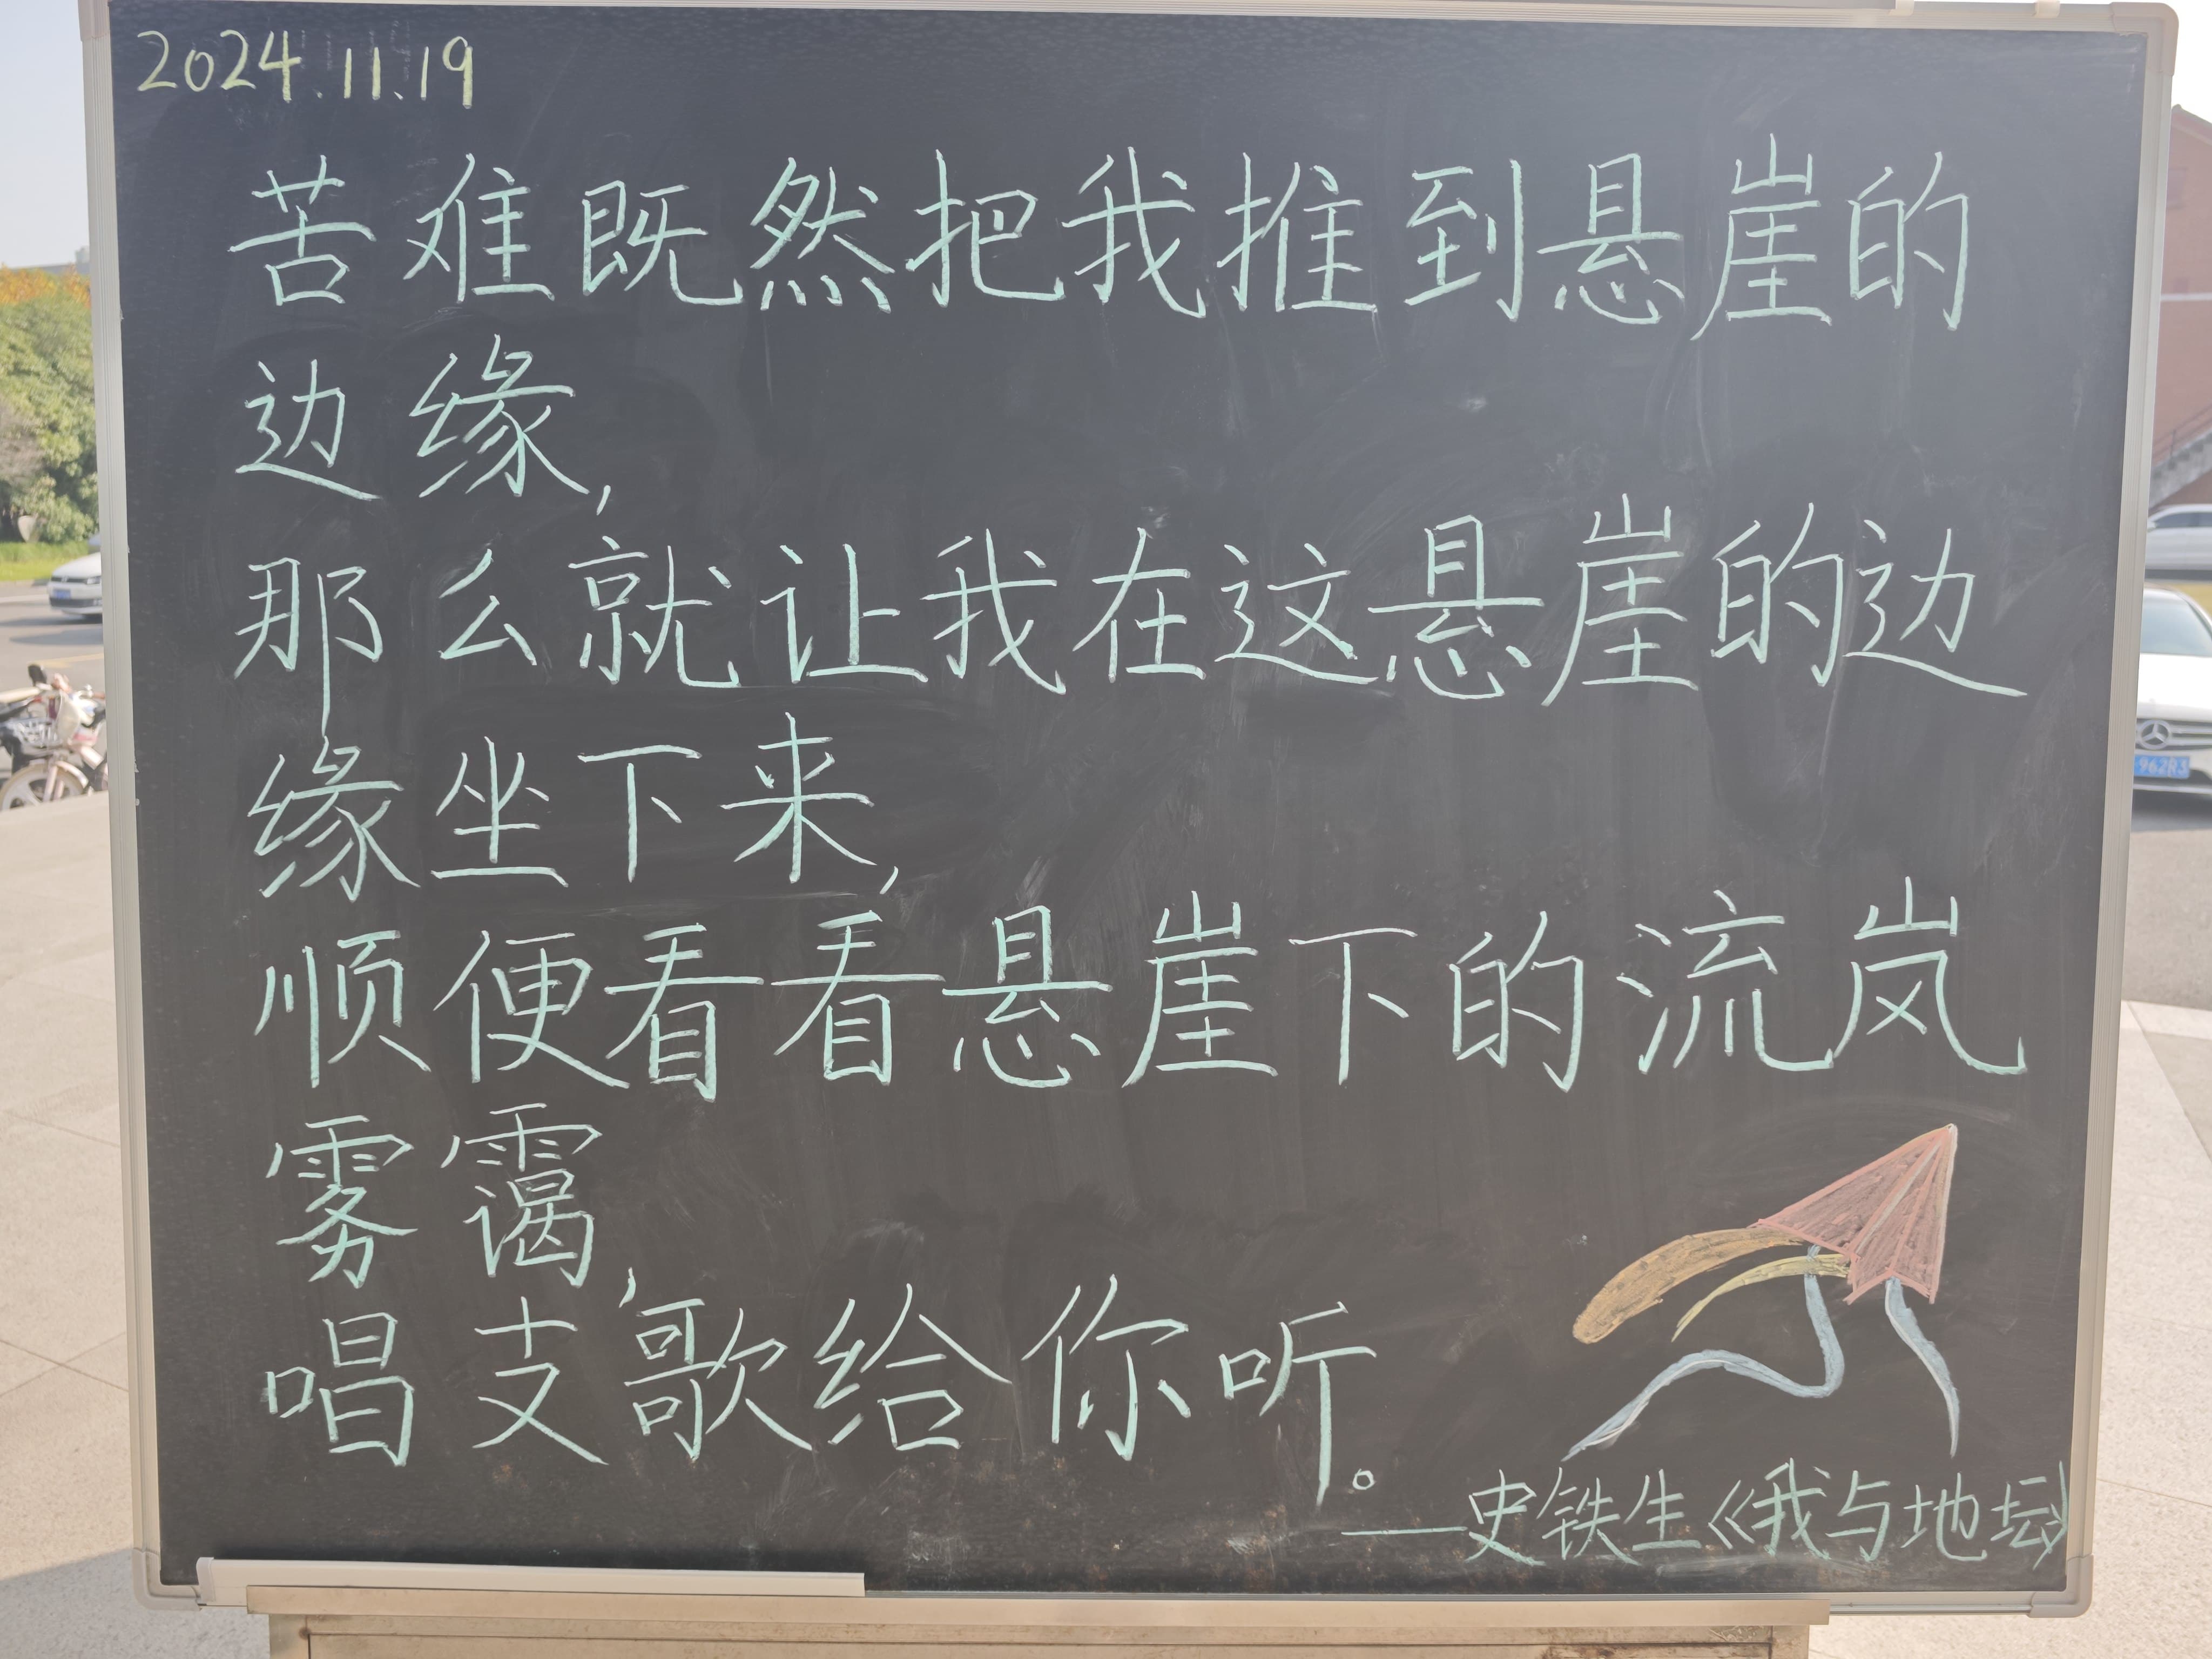 2024.11.19
苦难既然把我推到悬崖的
边缘,
那么就让我在这悬崖的边
缘坐下来,
顺便看看悬崖下的流岚
雾霭,
唱支歌给你听。
——史铁生《我与地坛》
962R3